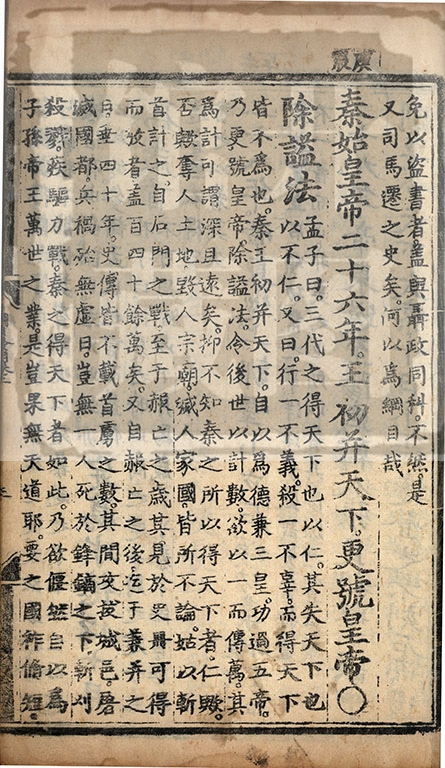 庚辰
免以盜書者蓋與聶政同科不然是
又司馬遷之史矣何以為綱目哉
秦始皇帝二十六年王初并天下更號皇帝〇
除謚法 孟子曰三代之得天下也以仁其失天下也
以不仁又曰行一不義殺一不辜而得天下
皆不為也秦王初并天下自以為德兼三皇功過五帝
乃更號皇帝除謚法令後世以計數欲以一而傳萬其
為計可謂深且遠矣抑不知秦之所以得天下者仁歟
否歟奪人土地毀人宗廟滅人家國皆所不論姑以斬
首計之自石門之戰至于赧亡之歲其見於史冊可得
而攷者蓋百四十餘萬矣又自赧亡之後迄于兼并之
日垂四十年史傳皆不載首虜之數其間交䒿城邑屠
滅國都兵禍殆無虛日豈無一人死於鋒鏑之下斬刈
殺戮疾驅力戰秦之得天下者如此乃欲偃然自以為
子孫帝王萬世之業是豈果無天道耶要之國祚脩短